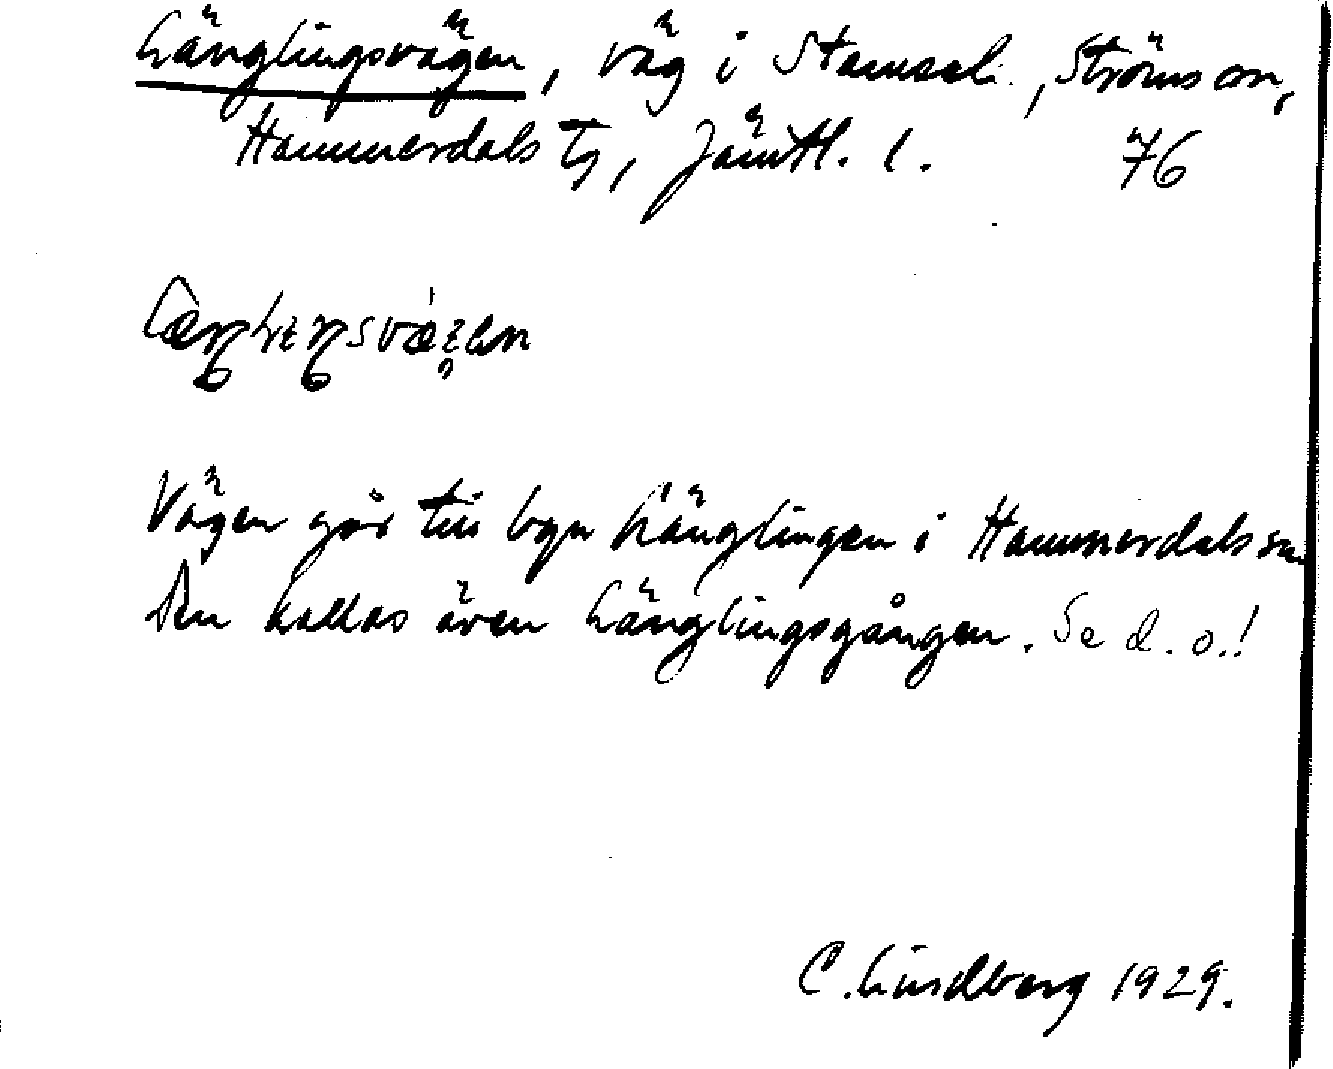 Länglingsvägen, väg i Stamsele, Ströms sn,
Hammerdals tg, Jämtl. l. 76
Vägen går till byn Länglingen i Hammerdals sn.
Den kallas även Länglingsgången. Se d. o.!
C. Lindberg 1929.